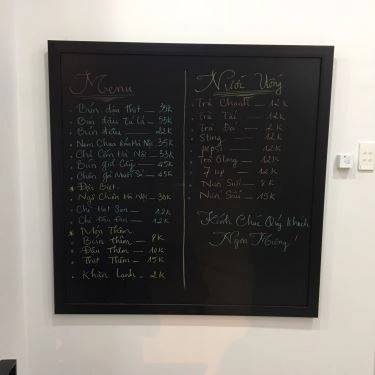 Menu
Bún đậu Thịt — 35K
Bún đậu Tá Lả — 55K
Bún đậu — 22K
Nem Chua Rán Hà Nội 35K
Chả Cốm Hà Nội — 35K
Bún giò Cây — 45K
Chân gà Muối Sả — 45K
Đặc Biệt
Ngũ Chiên Hà Nội — 30K
Chè Hạt Sen — 12K
Chè Đậu Đen — 12K
Món Thêm
Bún Thêm — 8K
Đậu Thêm — 10K
Thịt Thêm — 15K
Khăn Lạnh — 2K
Nước Uống
Trà Chanh — 12K
Trà Tắc — 12K
Trà Đá — 2K
Sting — 12K
pepsi — 12K
Trà Ôlong — 12K
7 up — 12K
Nun Suối — 8K
Nun Suối — 15K
Kính Chúc Quý Khách
Ngon Miệng!